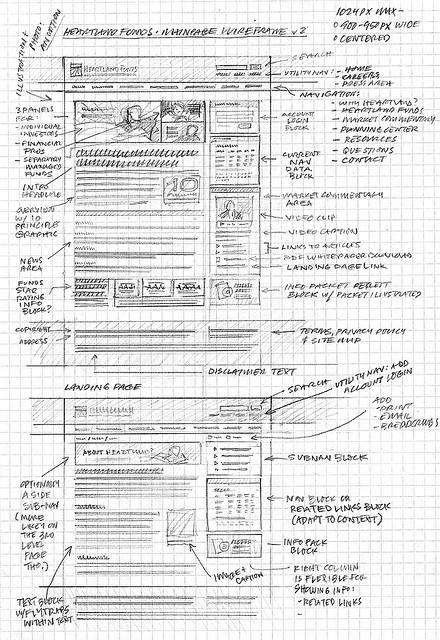 HEARTLAND FUNDS - MAINPAGE WIREFRAME v2
1024 PX MAX -
900-950 PX WIDE
CENTERED
ILLUSTRATION &
PHOTO
HEARTLAND FUNDS
SEARCH
UTILITY NAV: - HOME
- CAREERS
- PRESS AREA
NAVIGATION:
- WHY HEARTLAND?
- HEARTLAND FUNDS
- MARKET COMMENTARY
- PLANNING CENTER
- RESOURCES
- QUESTIONS
- CONTACT
3 PANELS
FOR:
- INDIVIDUAL
INVESTORS
- FINANCIAL
PROS
- SEPARATELY
MANAGED
FUNDS
INTRO
HEADLINE
OVERVIEW
W/ 10
PRINCIPLE
GRAPHIC
10
NEWS
AREA
FUNDS
STAR
RATING
INFO
BLOCK?
COPYRIGHT
ADDRESS
ACCOUNT
LOGIN
BLOCK
CURRENT
NAV
DATA
BLOCK
MARKET COMMENTARY
AREA
VIDEO CLIP
VIDEO CAPTION
LINKS TO ARTICLES
PDF WHITEPAPER DOWNLOADS
LANDING PAGE LINK
INFO PACKET REPEAT
BLOCK W/ PACKET ILLUSTRATED
TERMS, PRIVACY POLICY
& SITE MAP
DISCLAIMER TEXT
LANDING PAGE
SEARCH
UTILITY NAV: ADD
ACCOUNT LOGIN
ADD
- PRINT
- EMAIL
- BREADCRUMBS
ABOUT HEARTLAND?
SUBNAV BLOCK
OPTIONALLY
A SIDE
SUB-NAV
(MORE
LIKELY ON
THE 3RD
LEVEL
PAGE
THO.)
NAV BLOCK OR
RELATED LINKS BLOCK
(ADAPT TO CONTEXT)
INFO PACK
BLOCK
IMAGE &
CAPTION
RIGHT COLUMN
IS FLEXIBLE FOR
SHOWING INFO:
- RELATED LINKS
-
TEXT BLOCK
W/ FLYTRAPS
WITHIN TEXT